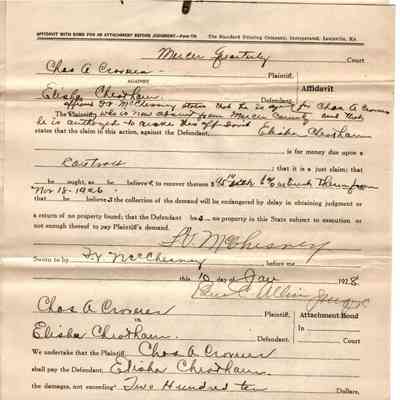 AFFIDAVIT WITH BOND FOR AN ATTACHMENT BEFORE JUDGMENT The Standard Printing Company, Incorporated, Louisville, Ky.
Mercer Quarterly Court
Chas A
Plaintiff.
AGAINST
Affidavit
Elisha Cheatham
Defendant.
affiant McChesney states that he is agent for Chas A
The Plaintiff, who is now absent from Mercer County and that
he is authorized to make this affidavit
states that the claim in this action, against the Defendant, Elisha Cheatham
is for money due upon a
contract
; that it is a just claim; that
he ought, as he believes to recover thereon $ with 6% interest therefrom
Nov 18-1926
that he believes the collection of the demand will be endangered by delay in obtaining judgment or
a return of no property found; that the Defendant has no property in this State subject to execution or
not enough thereof to pay Plaintiff's demand.
McChesney
Sworn to by McChesney before me
this 10 day of Jan 1928
Chas A
Plaintiff,
Attachment Bond
vs.
In Court
Elisha Cheatham
Defendant.
We undertake that the Plaintiff, Chas A
shall pay the Defendant, Elisha Cheatham
the damages, not exceeding Two Hundred ten Dollars,